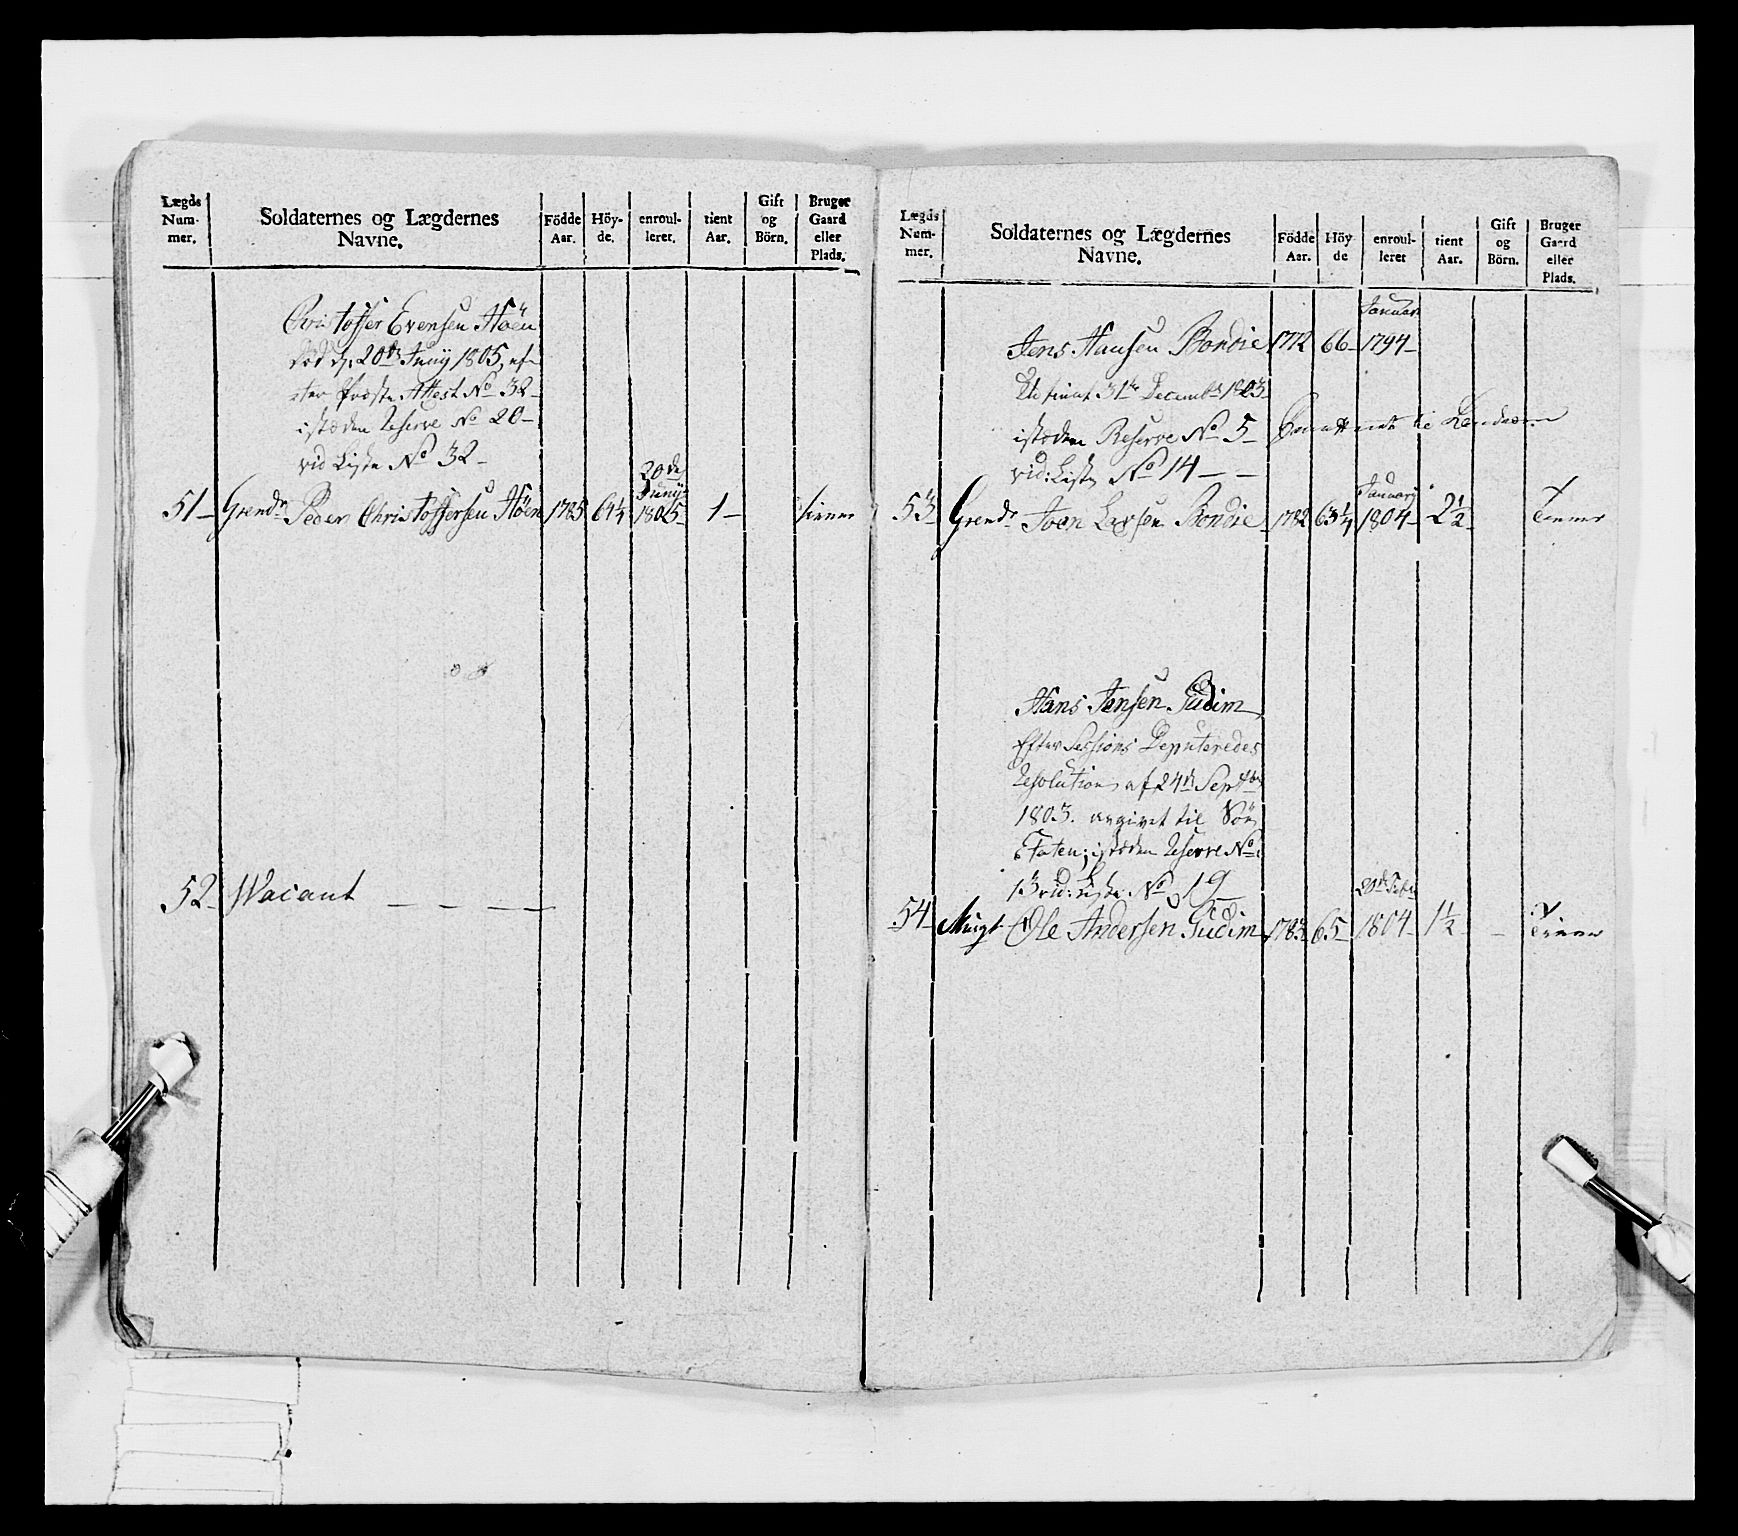 Lægds
Num-
mer.
Soldaternes og Lægdernes
Navne.
Födde
Aar.
Höy-
de.
enroul-
leret.
tient
Aar.
Gift
og
Börn.
Bruger
Gaard
eller
Plads.
Christoffer Evensen Höen
död d. 20de Juny 1805, ef-
ter Præste Attest No 32-
istæden Reserve No 20-
vid Liste No 32-
51- Grendr Peder Christoffersen Höen 1785 64¼ 20de Juny 1805- 1- tiener
52- Wacant - - - -
Lægds
Num-
mer.
Soldaternes og Lægdernes
Navne.
Födde
Aar.
Höy
de
enroul-
leret
tient
Aar.
Gift
og
Börn.
Bruger
Gaard
eller
Plads.
Jens Hansen Bondie 1772 66- Januar 1794-
Udtient 31te Decembr 1803-
istæden Reserve No 5- til
vid: Liste No 14 - -
53 Grendr Joen Larsen Bondie 1782 63¼ Januarij 1804- 2½- Tiener
Hans Jensen Gudim
Efter Sessions Deputeredes
Resolution af 24de Septbr
1803. avgivet til Söe
Etaten; istæden Reserve No
13 vid: Liste No 19-
54- Ole Andersen Gudim 1784 65- 20de Febr 1804- 1½ - Tiener